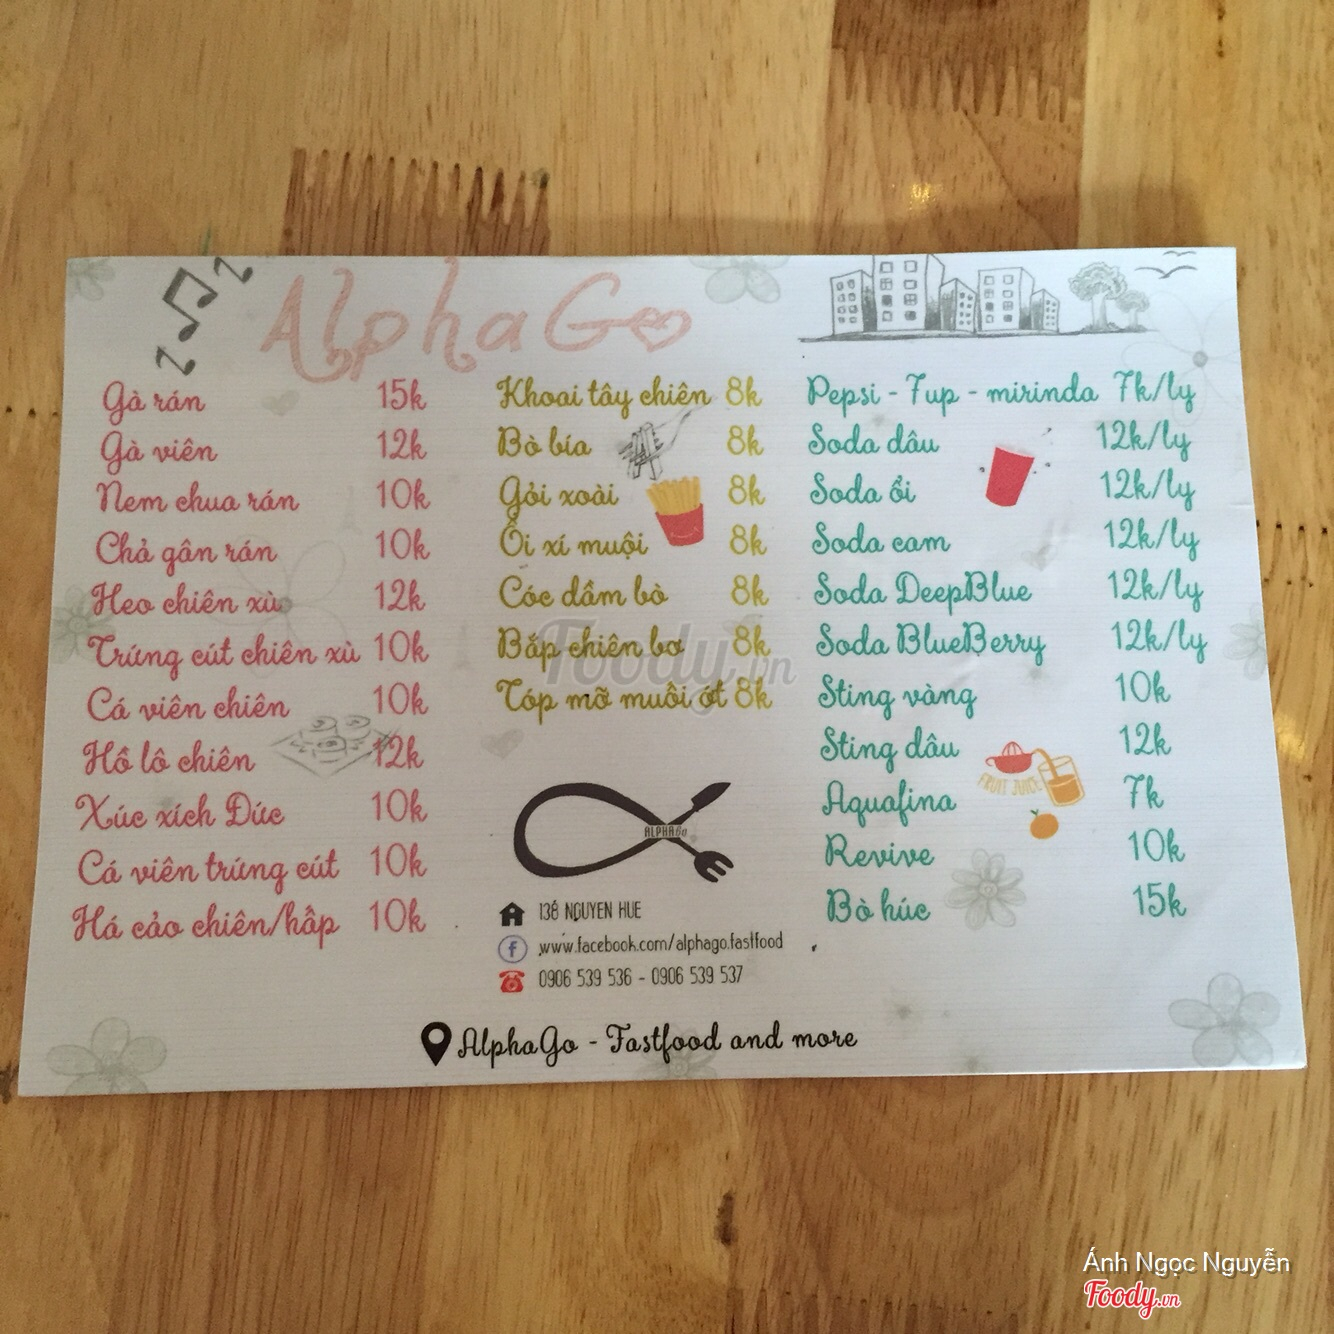 AlphaGo
Gà rán 15k
Gà viên 12k
Nem chua rán 10k
Chả gân rán 10k
Heo chiên xù 12k
Trứng cút chiên xù 10k
Cá viên chiên 10k
Hồ lô chiên 12k
Xúc xích Đức 10k
Cá viên trứng cút 10k
Há cảo chiên/hấp 10k
Khoai tây chiên 8k
Bò bía 8k
Gỏi xoài 8k
Ổi xí muội 8k
Cóc dầm bò 8k
Bắp chiên bơ 8k
Tóp mỡ muối ớt 8k
Foody.vn
ALPHAGo
138 NGUYEN HUE
www.facebook.com/alphago.fastfood
0906 539 536 - 0906 539 537
Pepsi - 7up - mirinda 7k/ly
Soda dâu 12k/ly
Soda ổi 12k/ly
Soda cam 12k/ly
Soda DeepBlue 12k/ly
Soda BlueBerry 12k/ly
Sting vàng 10k
Sting dâu 12k
FRUIT JUICE
Aquafina 7k
Revive 10k
Bò húc 15k
AlphaGo - Fastfood and more
Ánh Ngọc Nguyễn
Foody.vn